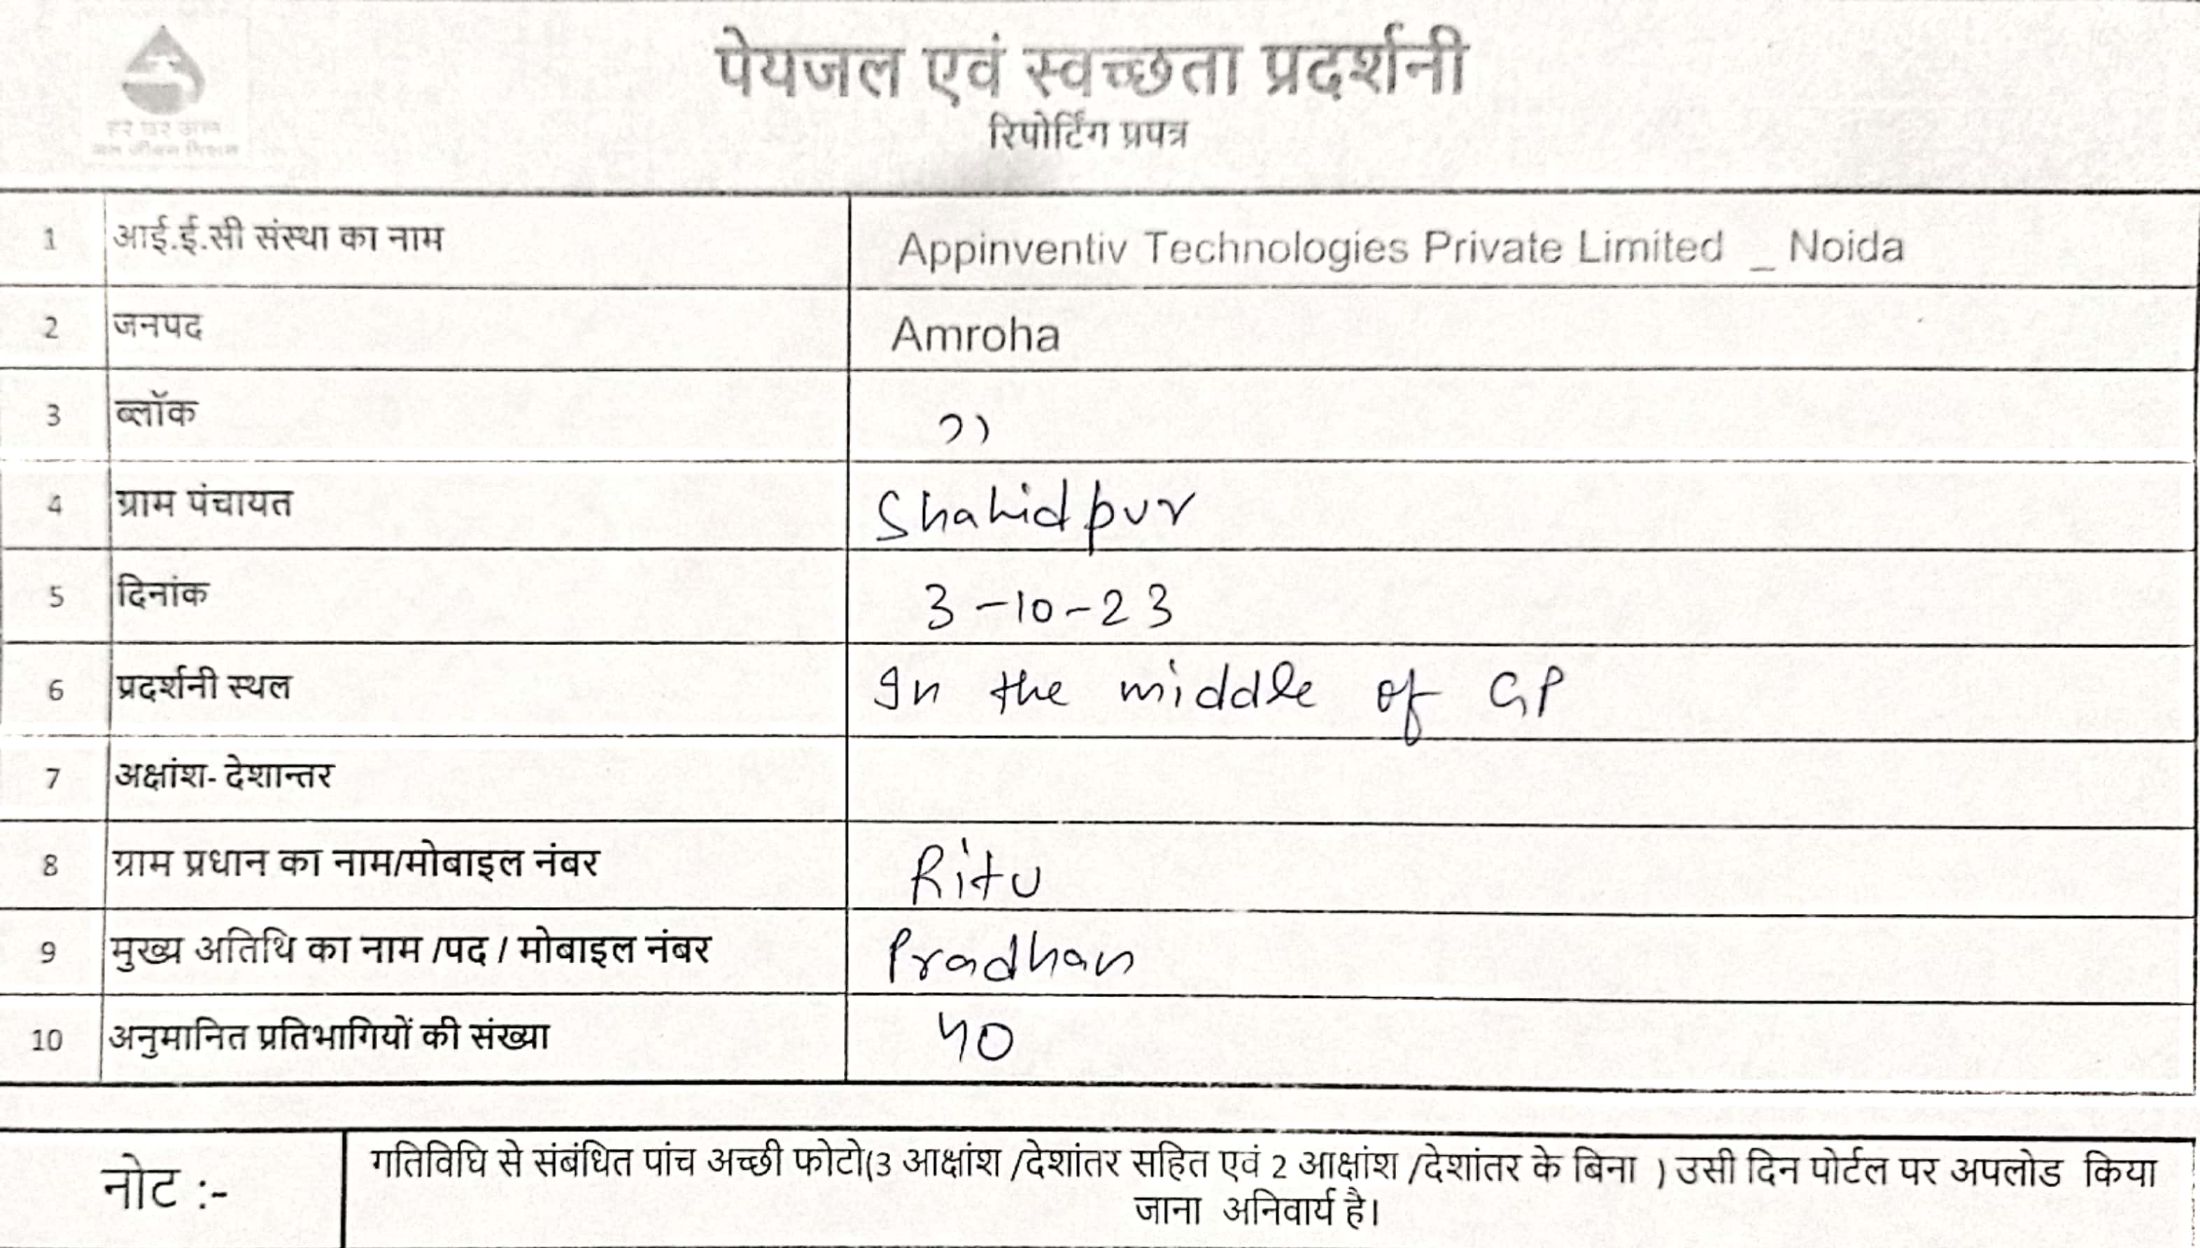 हर घर जल
जल जीवन मिशन
पेयजल एवं स्वच्छता प्रदर्शनी
रिपोर्टिंग प्रपत्र
1 आई.ई.सी संस्था का नाम Appinventiv Technologies Private Limited _ Noida
2 जनपद Amroha
3 ब्लॉक ))
4 ग्राम पंचायत Shahidpur
5 दिनांक 3-10-23
6 प्रदर्शनी स्थल In the middle of GP
7 अक्षांश- देशान्तर
8 ग्राम प्रधान का नाम/मोबाइल नंबर Ritu
9 मुख्य अतिथि का नाम /पद / मोबाइल नंबर Pradhan
10 अनुमानित प्रतिभागियों की संख्या 40
नोट :- गतिविधि से संबंधित पांच अच्छी फोटो(3 आक्षांश /देशांतर सहित एवं 2 आक्षांश /देशांतर के बिना ) उसी दिन पोर्टल पर अपलोड किया
जाना अनिवार्य है।